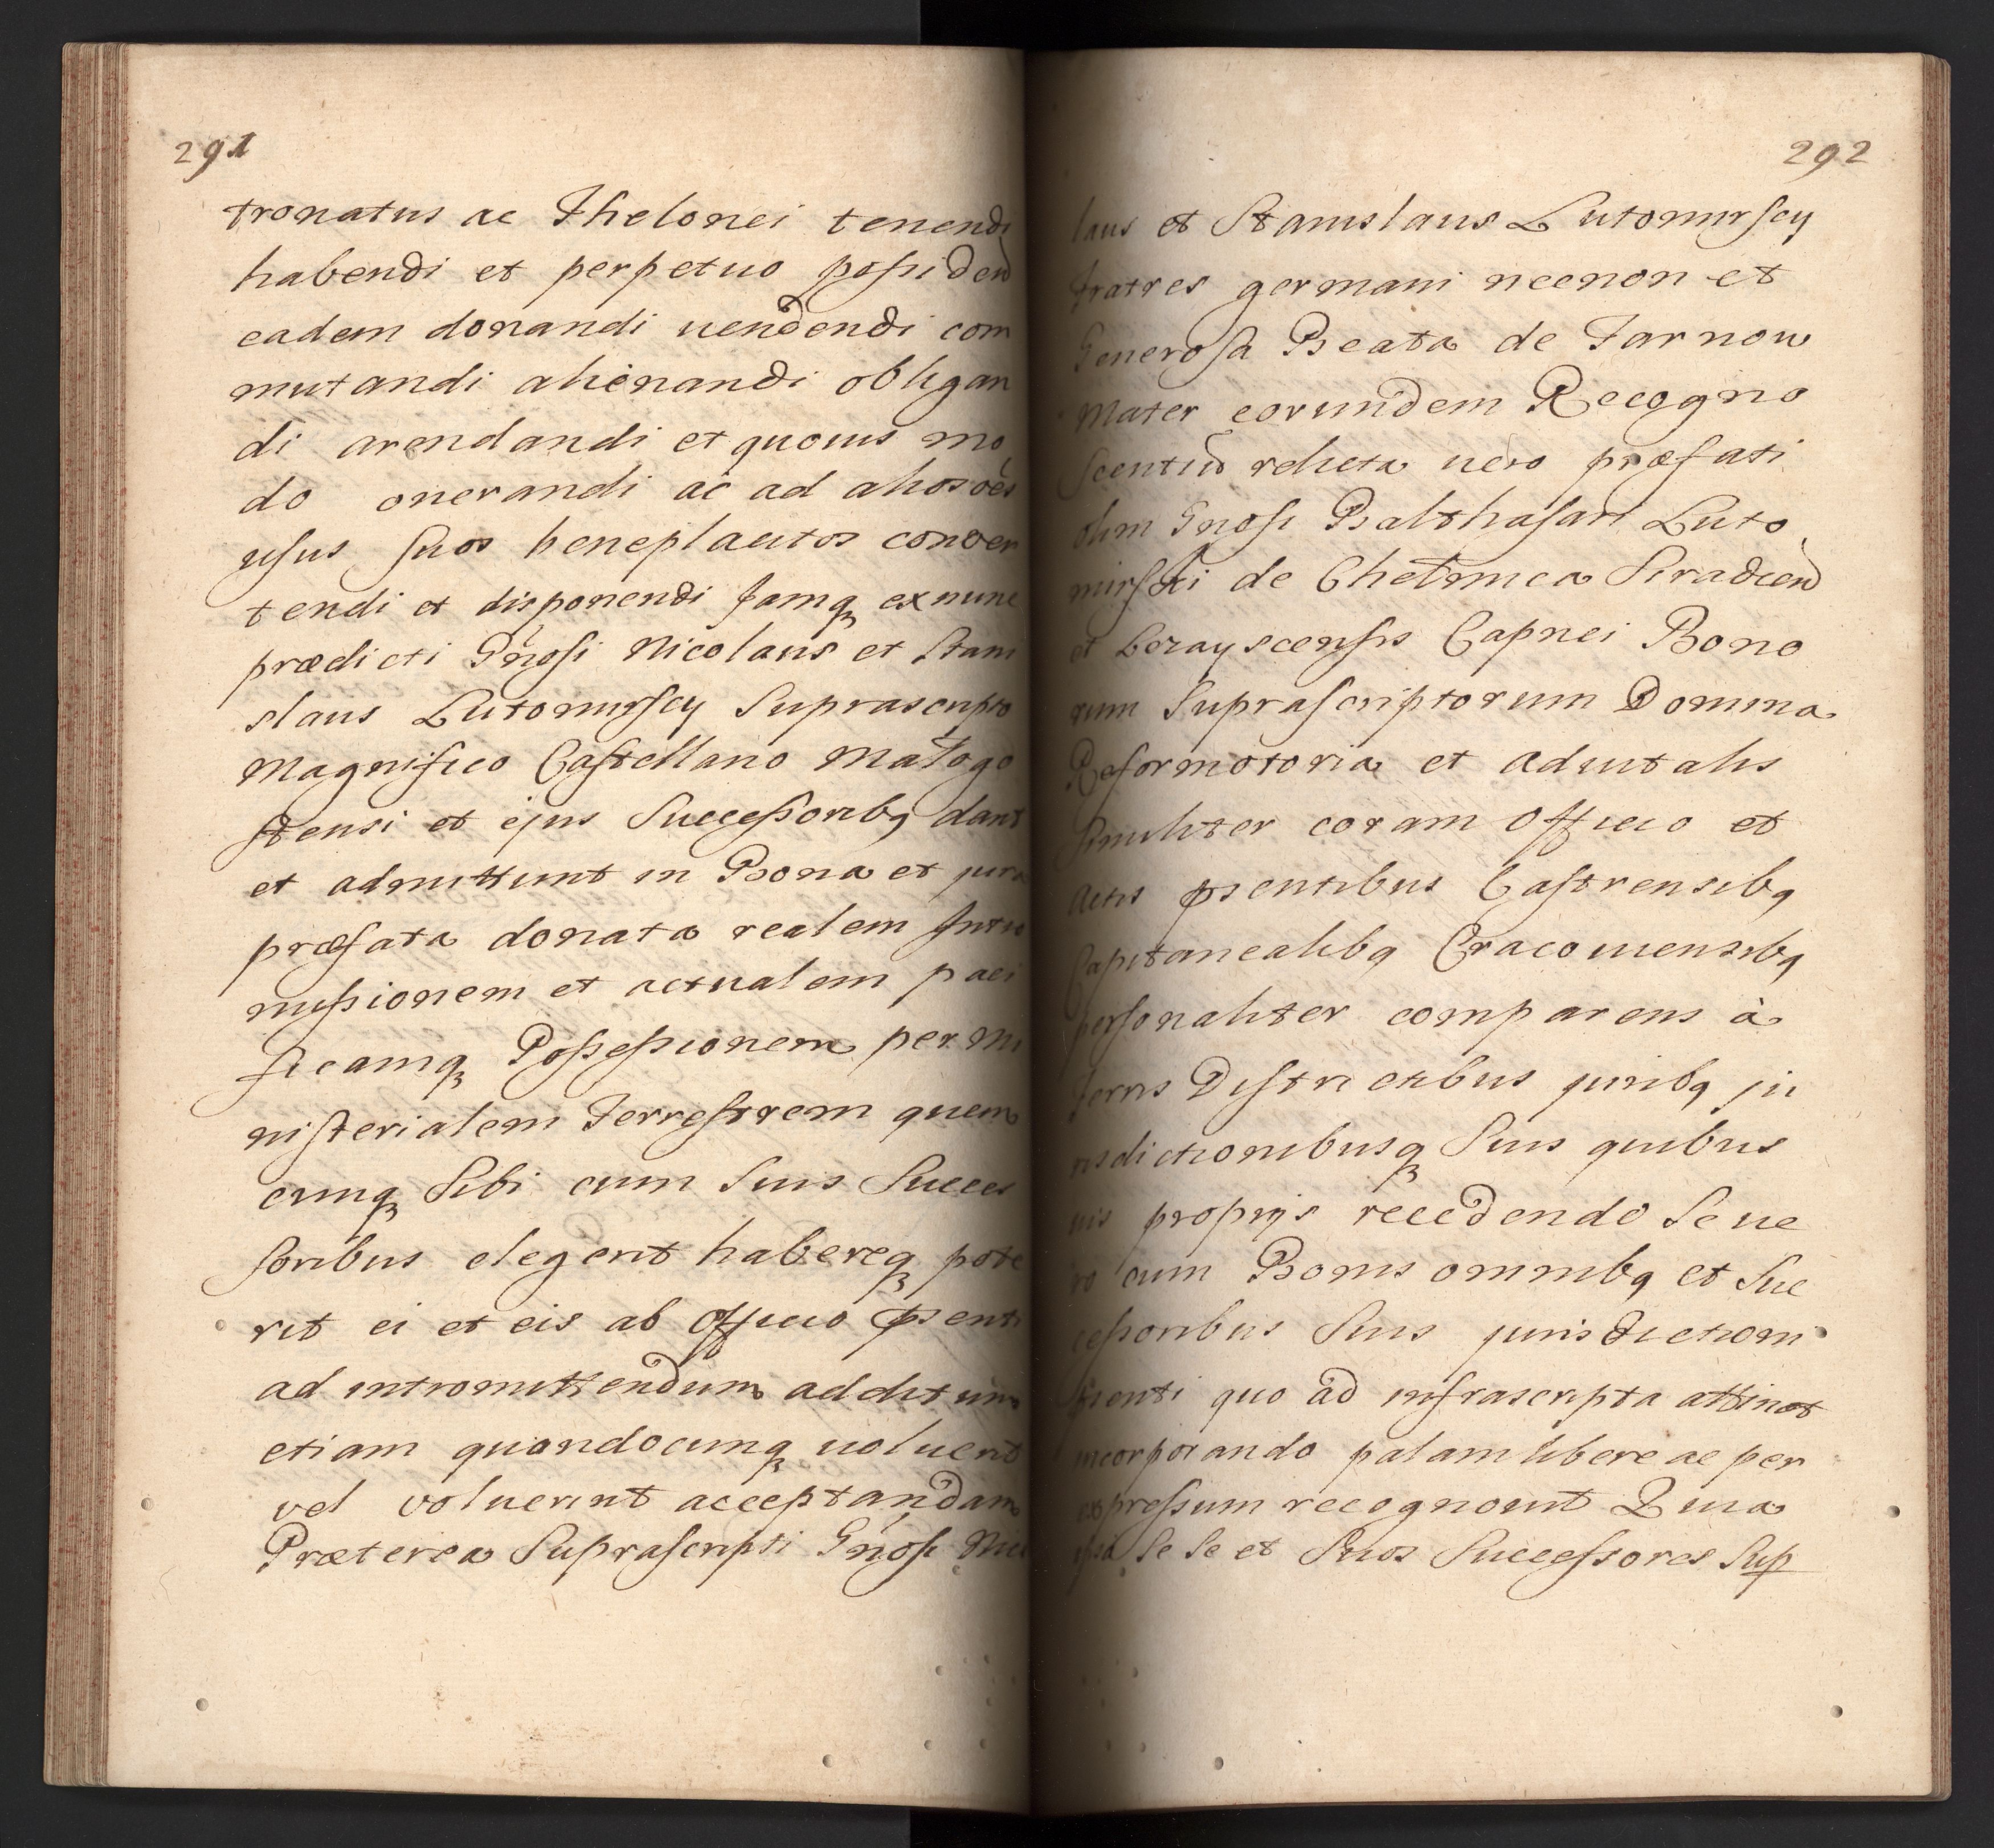 291
tronatus ac Thelonei tenendi
habendi et perpetuo possidend
eadem donandi uendendi com
mutandi alienandi obligan
di arendandi et quouis mo
do onerandi ac ad alios oēs
usus suos beneplacitos conver
tendi et disponendi Jamq3 ex nunc
prædicti Gnosi Nicolaus et Stani
slaus Lutomirscy Suprascripto
Magnifico Castellano Małogo
stensi et ejus Successoribq dant
et admittunt in Bona et jura
præfata donata realem Intro
missionem et actualem paci
ficamq3 Possessionem per Mi
nisterialem Terrestrem quem
cunq3 Sibi cum Suis Succes
soribus elegerit habereq3 pote
rit ei et eis ab Officio psenti
ad intromittendum additum
etiam quandocunq3 uoluerit
vel voluerint acceptandam
Præterea Suprascripti Gnosi Nico
292
laus et Stanislaus Lutomirscy
fratres germani necnon et
Generosa Beata de Tarnow
Mater eorumdem Recogno
scentiu relicta uero præfati
olim Gnosi Balthasari Luto
mirski de Chełmica Siradien
et Lezayscensis Capnei Bono
rum Suprascriptorum Domina
Reformotoria et aduitalis
Similiter coram Officio et
Actis psentibus Castrensibq
Capitanealibq Cracouiensibq
personaliter comparens à
Terris Districtibus juribq ju
risdictionibusq3 Suis quibus
uis proprijs recedendo Se ue
ro cum Bonis omnibq et Suc
cessoribus Suis jurisdictioni
psenti quo ad infrascripta attinet
incorporando palam libere ac per
expressum recognouit Quia
ipsa Se Se et Suos Successores Sup